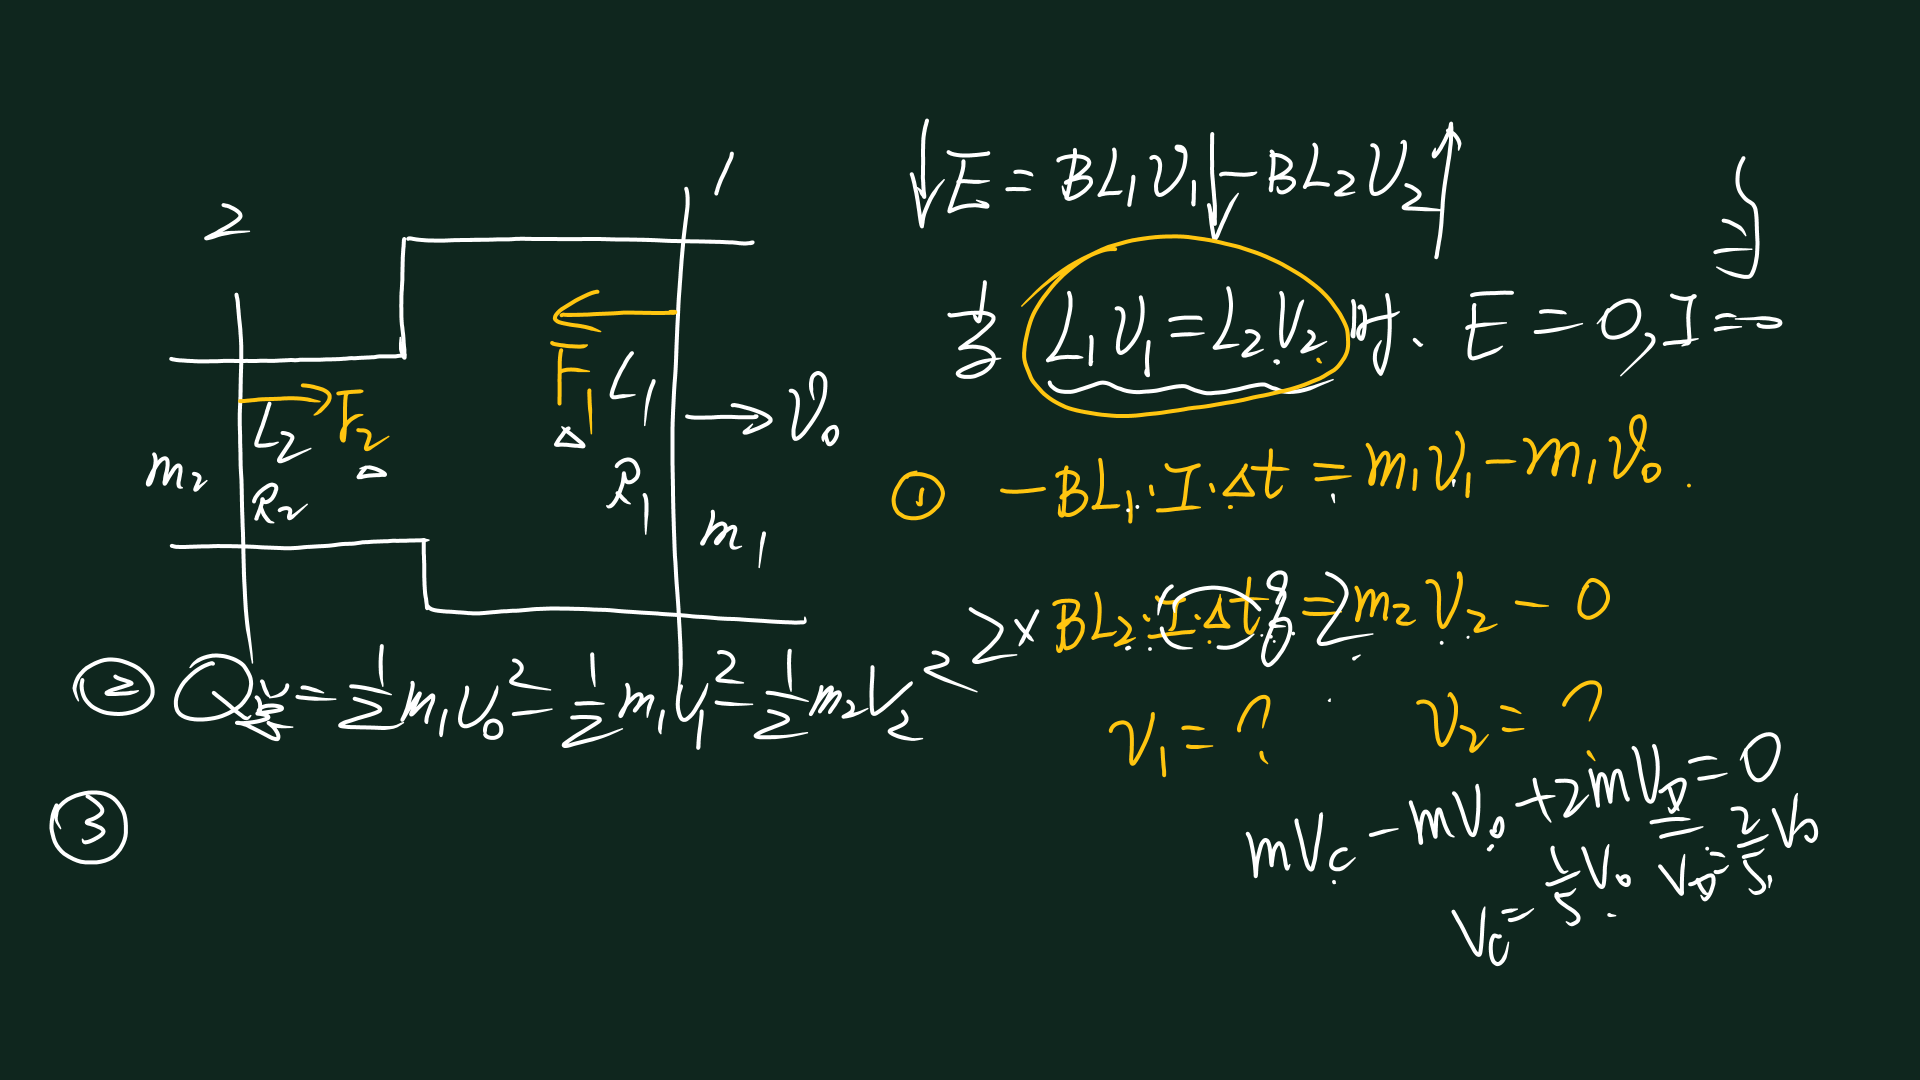 2
1
L₂
F₂
m₂
R₂
F₁
L₁
R₁
m₁
v₀
E = BL₁v₁ - BL₂v₂
当 L₁v₁ = L₂v₂ 时. E = 0, I = 0
① -BL₁·I·Δt = m₁v₁ - m₁v₀
2× BL₂·I·Δt = 2 m₂v₂ - 0
v₁ = ? v₂ = ?
② Q总 = ½m₁v₀² - ½m₁v₁² - ½m₂v₂²
mv_C - mv₀ + 2mv_D = 0
v_C = 1/5 v₀ v_D = 2/5 v₀
③